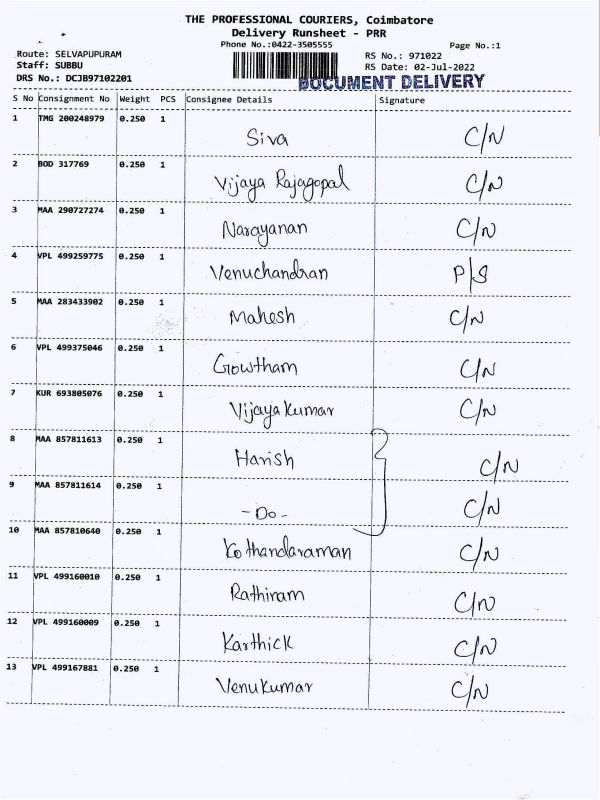 THE PROFESSIONAL COURIERS, Coimbatore
Delivery Runsheet - PRR
Phone No.:0422-3505555 Page No.:1
Route: SELVAPUPURAM RS No.: 971022
Staff: SUBBU RS Date: 02-Jul-2022
DRS No.: DCJB97102201 DOCUMENT DELIVERY
S No Consignment No Weight PCS Consignee Details Signature
1 TMG 200248979 0.250 1 Siva C/N
2 BOD 317769 0.250 1 Vijaya Rajagopal C/N
3 MAA 290727274 0.250 1 Narayanan C/N
4 VPL 499259775 0.250 1 Venuchandran P/S
5 MAA 283433902 0.250 1 Mahesh C/N
6 VPL 499375046 0.250 1 Growtham C/N
7 KUR 693805076 0.250 1 Vijaya Kumar C/N
8 MAA 857811613 0.250 1 Harish C/N
9 MAA 857811614 0.250 1 - Do - C/N
10 MAA 857810640 0.250 1 Kothandaraman C/N
11 VPL 499160010 0.250 1 Rathiram C/N
12 VPL 499160009 0.250 1 Karthick C/N
13 VPL 499167881 0.250 1 Venukumar C/N